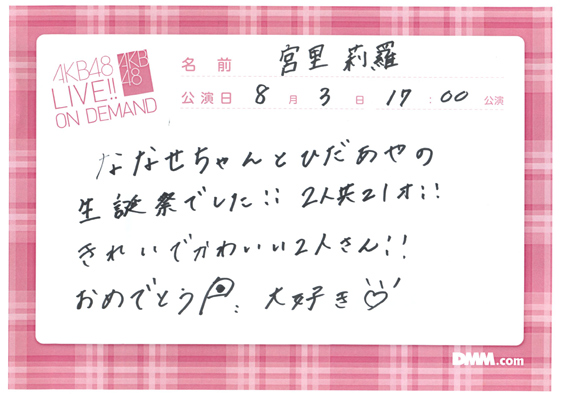 AKB48
LIVE!!
ON DEMAND
AKB
48
名前 宮里 莉羅
公演日 8月3日 17:00公演
ななせちゃんとひだあやの
生誕祭でした!! 2人共21才!!
きれいでかわいい2人さん!!
おめでとう 大好き♡
DMM.com